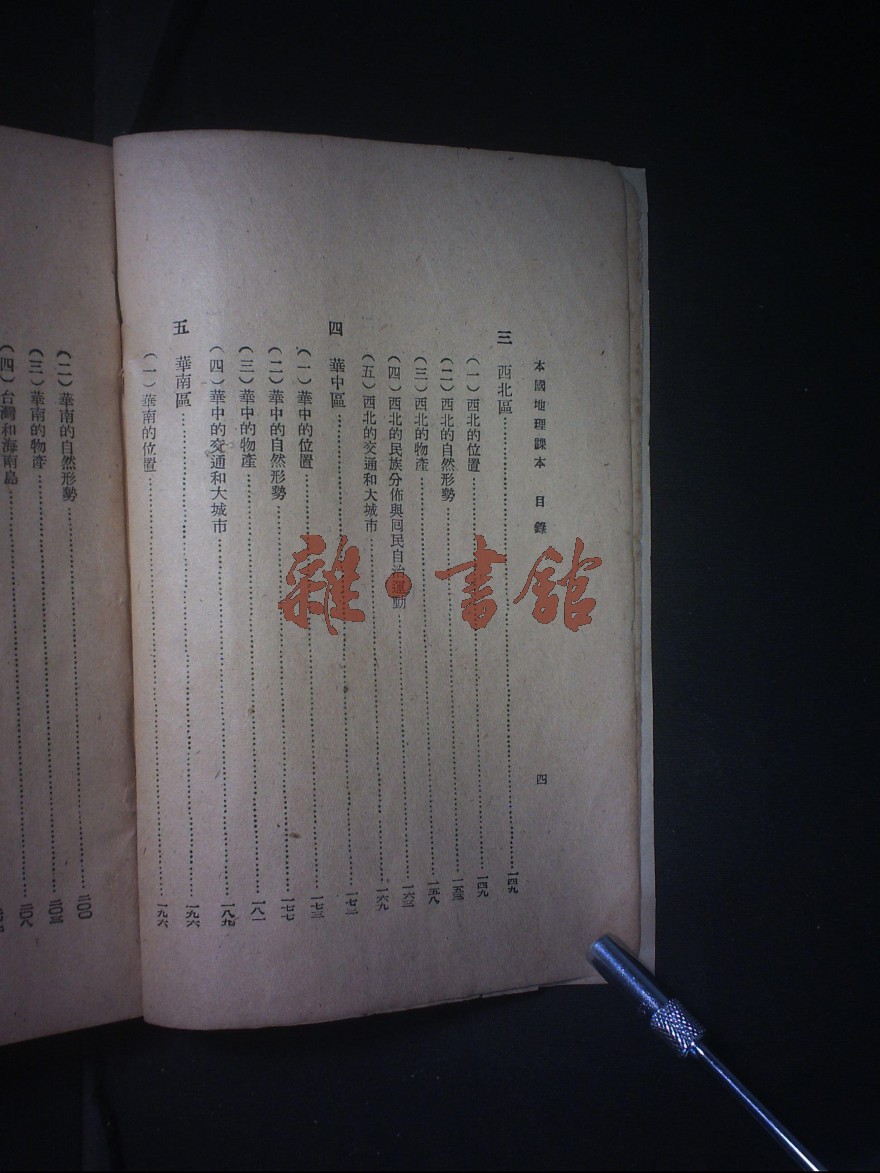 本國地理課本 目錄 四
三 西北區……一四九
(一)西北的位置……一四九
(二)西北的自然形勢……一五三
(三)西北的物產……一五八
(四)西北的民族分佈與回民自治運動……一六三
(五)西北的交通和大城市……一六九
四 華中區……一七二
(一)華中的位置……一七三
(二)華中的自然形勢……一七七
(三)華中的物產……一八一
(四)華中的交通和大城市……一八九
五 華南區……一九六
(一)華南的位置……一九六
(二)華南的自然形勢……二〇〇
(三)華南的物產……二〇三
(四)台灣和海南島……二〇八
雜·書館